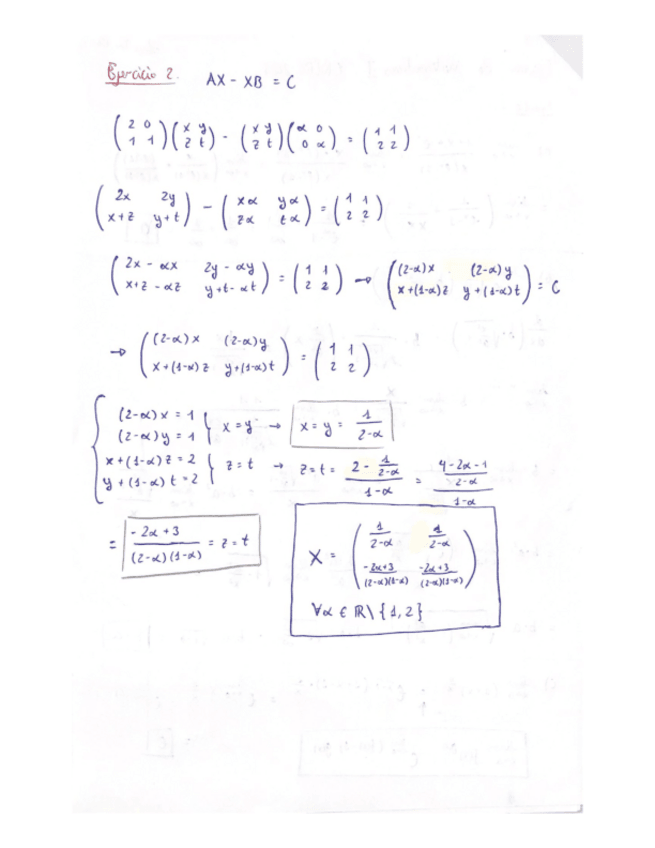 Ejercicio 2. AX - XB = C
(2 0 / 1 1)(x y / z t) - (x y / z t)(α 0 / 0 α) = (1 1 / 2 2)
(2x 2y / x+z y+t) - (xα yα / zα tα) = (1 1 / 2 2)
(2x - αx 2y - αy / x+z - αz y+t - αt) = (1 1 / 2 2) → ((2-α)x (2-α)y / x+(1-α)z y+(1-α)t) = C
→ ((2-α)x (2-α)y / x+(1-α)z y+(1-α)t) = (1 1 / 2 2)
{ (2-α)x = 1
(2-α)y = 1 } x = y → x = y = 1/(2-α)
x+(1-α)z = 2
y+(1-α)t = 2 } z = t → z = t = (2 - 1/(2-α))/(1-α) = ((4-2α-1)/(2-α))/(1-α)
= (-2α+3)/((2-α)(1-α)) = z = t
X = (1/(2-α) 1/(2-α) / (-2α+3)/((2-α)(1-α)) (-2α+3)/((2-α)(1-α)))
∀α ∈ ℝ\{1,2}